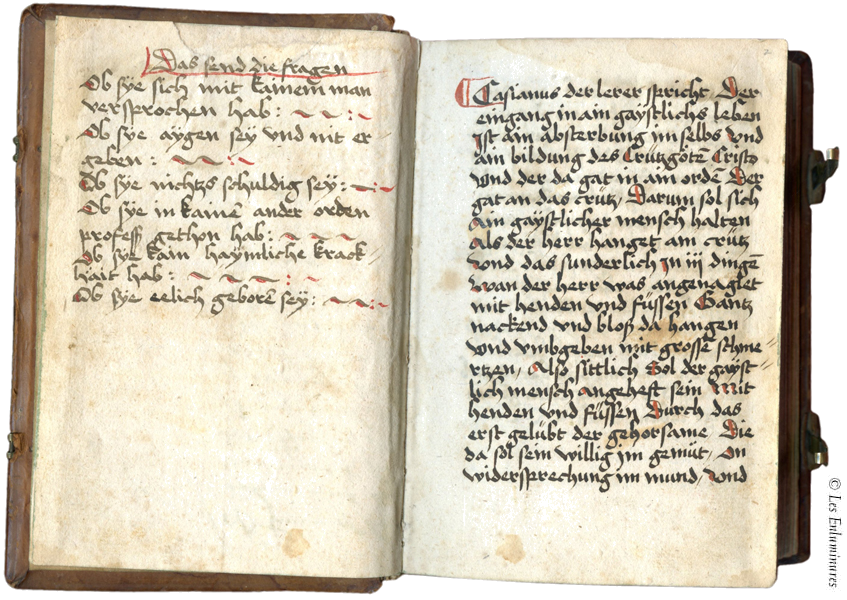 Das send die fragen
Ob sye sich mit kainem man
versprochen hab :
Ob sye aygen sey vnd nit er-
geben :
Ob sye nichtzs schuldig sey :
Ob sye in kainē ander orden
profess gethon hab :
Ob sye kain haymliche kranck-
hait hab :
Ob sye eelich geborē sey :
Casianus der lerer spricht Der
eingang in ain gaystlichs leben
ist ain absterbung im selbs Vnd
ain bildung des Crützgotē Cristo
Vnd der da gat in ain ordē Der
gat an das crütz / Darum sol sich
Ain gaystlicher mensch halten
Als der herr hanget am crütz
Vnd das sunderlich In iii dingē
Wan der herr was angenaglet
mit henden vnd füssen Gantz
nackend vnd bloß da hangen
Vnd vmbgeben mit grossē schme-
rtzen / Also sittlich Sol der gayst
lich mensch Angeheft sein Mit
henden vnd füssen Durch das
erst gelübt der gehorsame / Die
da sol sein willig jm gemüt / On
widersprechung im mund / Vnd
© Les Enluminures